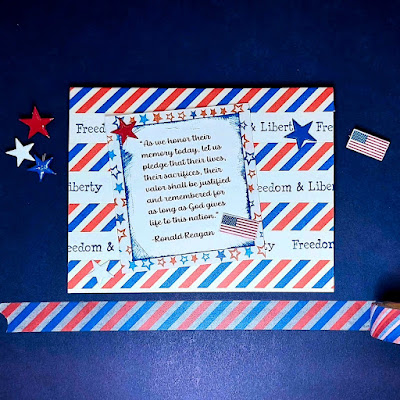 Freedom & Liberty
"As we honor their
memory today, let us
pledge that their lives,
their sacrifices, their
valor shall be justified
and remembered for
as long as God gives
life to this nation."
-Ronald Reagan
Liberty
Freedom
eedom & Liberty
Freedom